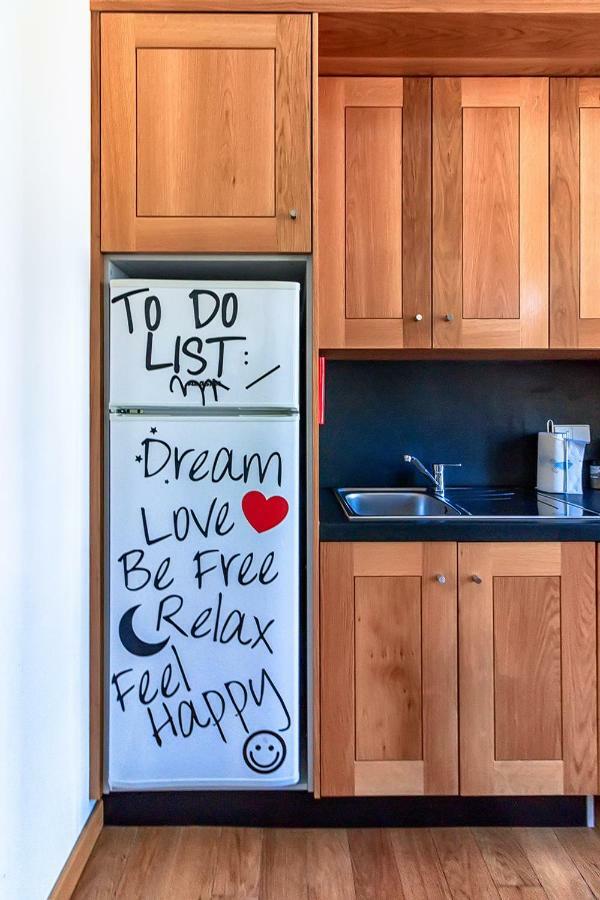 TO DO
LIST:
Dream
Love
Be Free
Relax
Feel
Happy